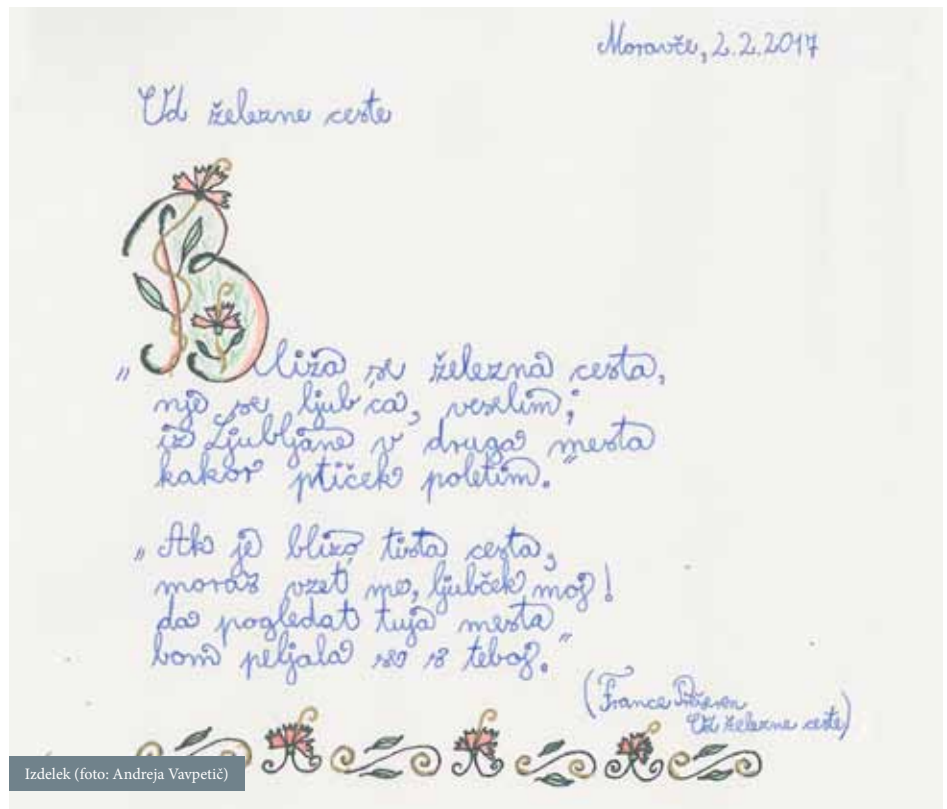 Moravče, 2.2.2017
Od železne ceste
„Bliža se železna cesta,
nje se ljub'ca, veselim;
iz Ljubljane v druga mesta
kakor ptiček poletim."
„Ak je blizo tista cesta,
moraš vzet me, ljubček moj!
da pogledat tuja mesta
bom peljala se s teboj."
(France Prešeren
Od železne ceste)
Izdelek (foto: Andreja Vavpetič)